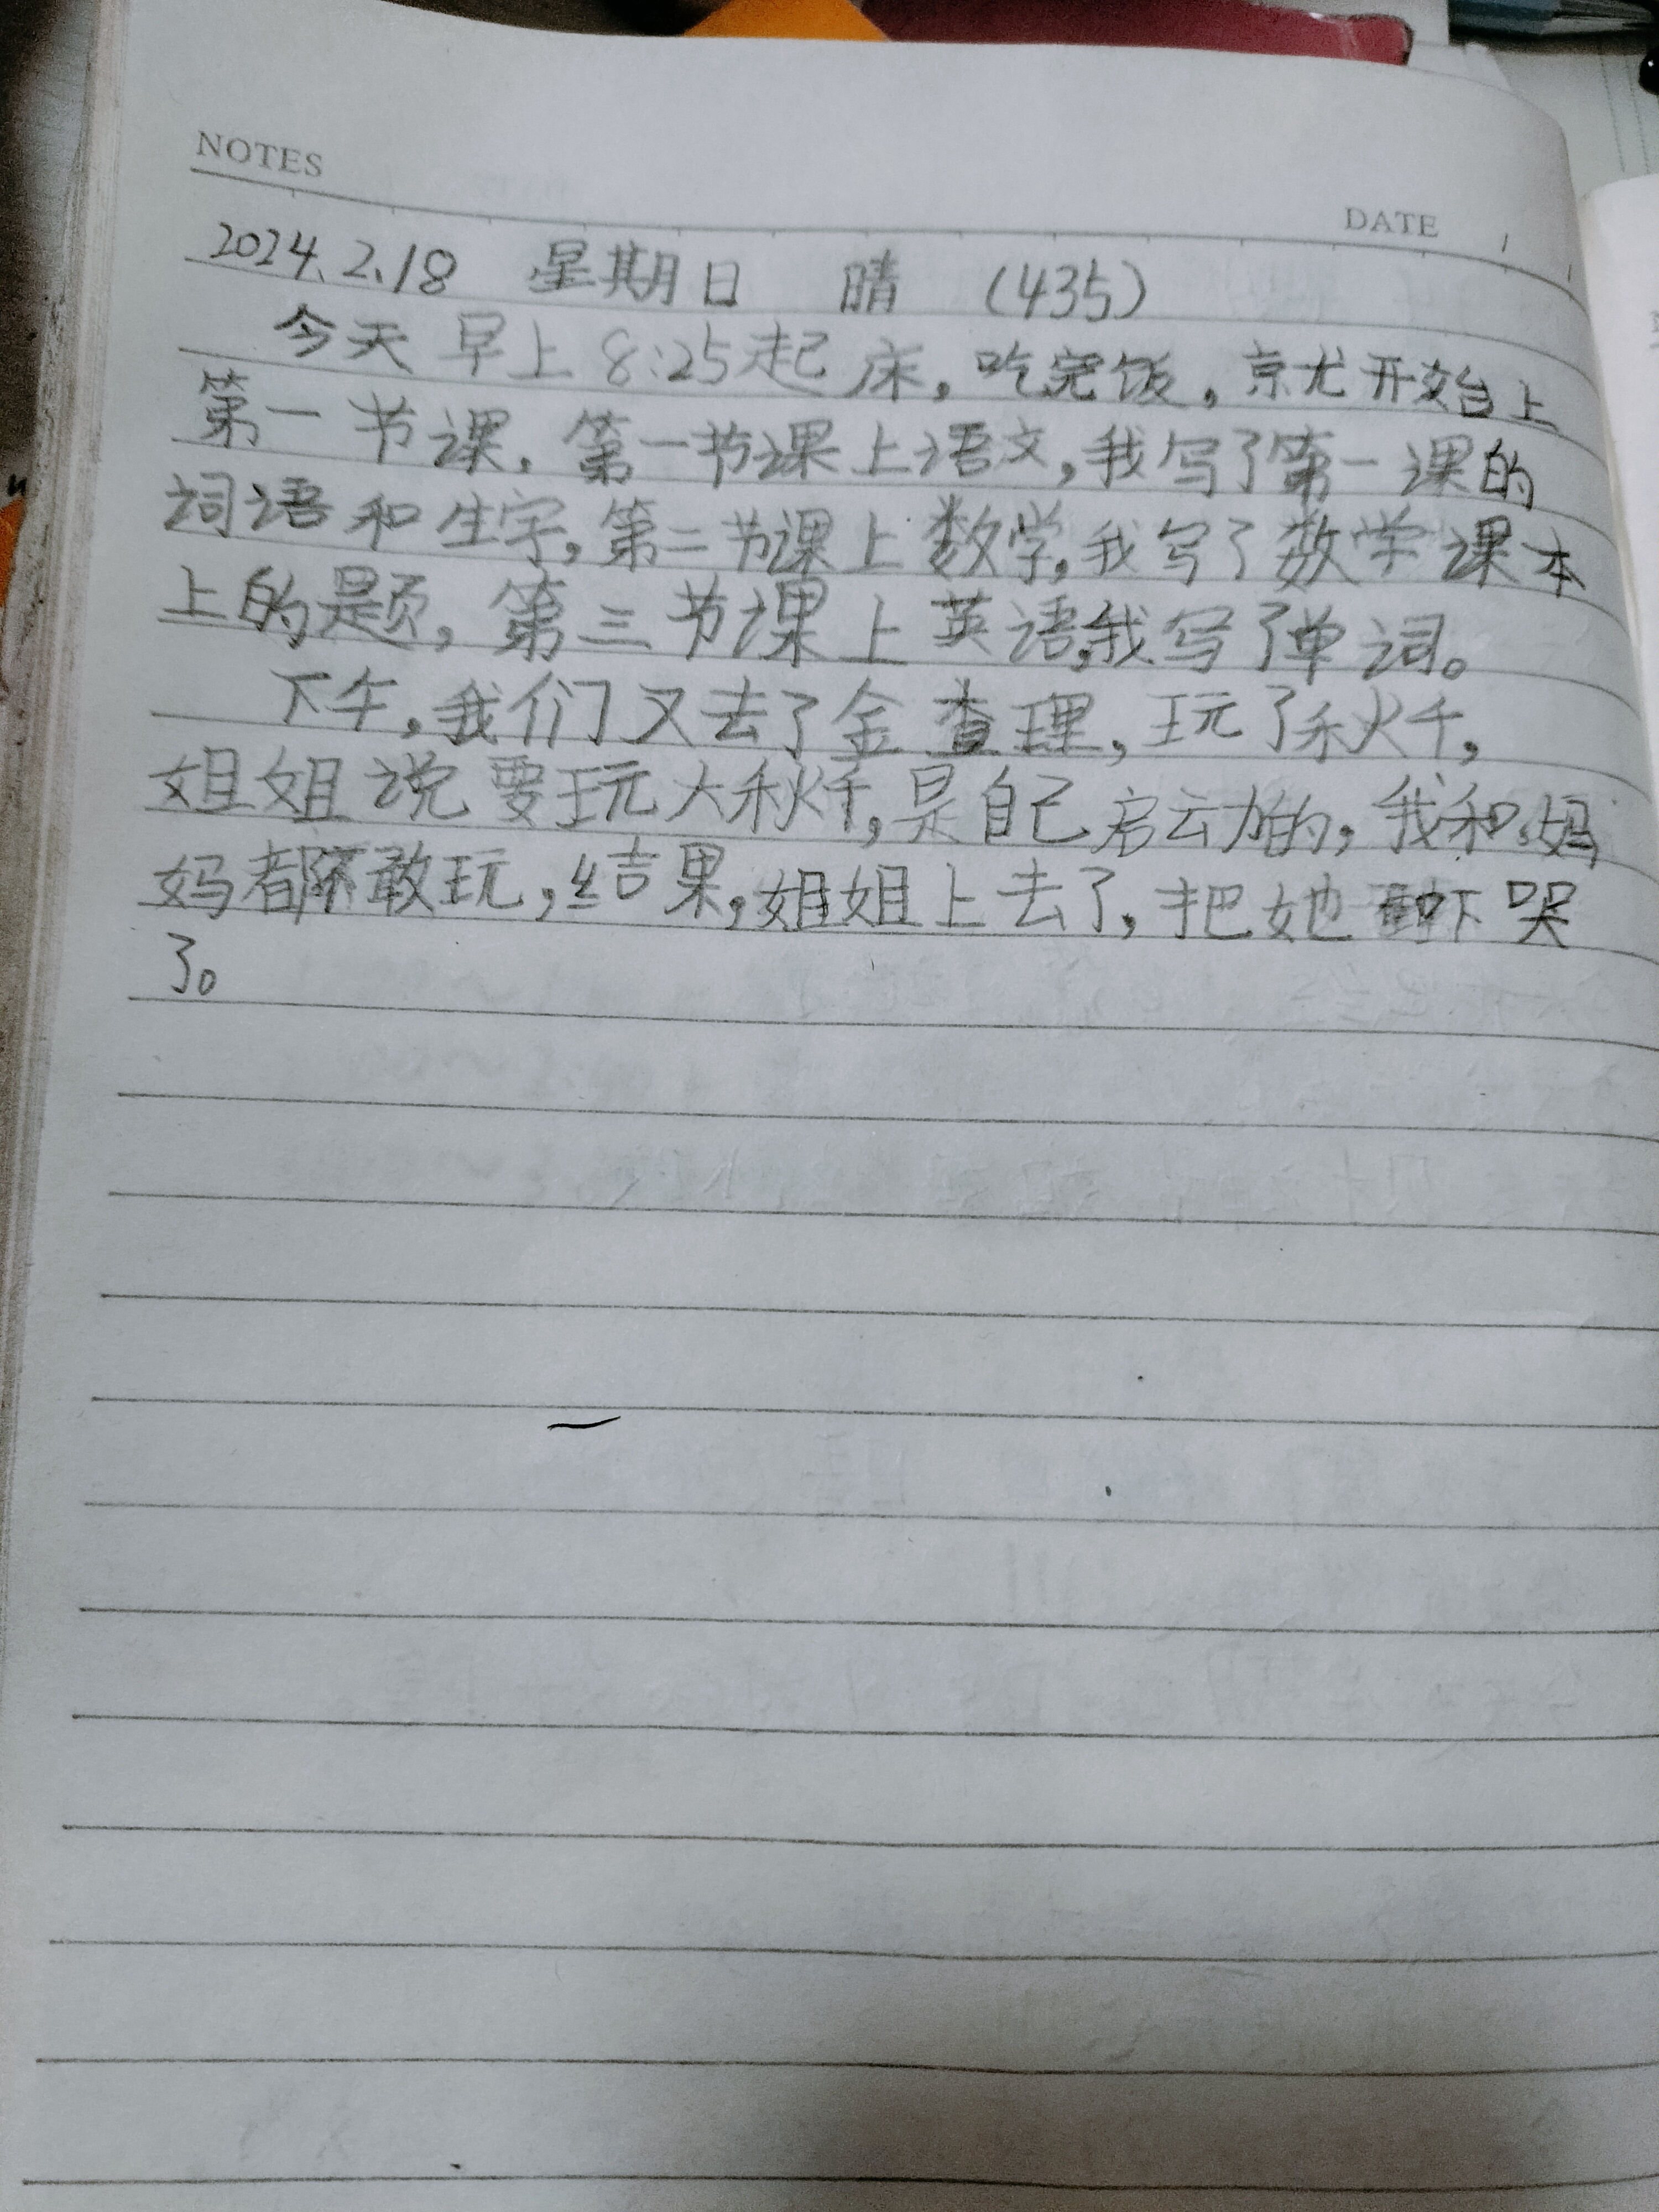 NOTES
DATE
2024.2.18 星期日 晴 (435)
今天早上8:25起床，吃完饭，京尤开始上
第一节课，第一节课上语文，我写了第一课的
词语和生字，第二节课上数学，我写了数学课本
上的题，第三节课上英语，我写了单词。
下午，我们又去了金查理，玩了秋千，
姐姐说要玩大秋千，是自己启动的，我和妈
妈都不敢玩，结果，姐姐上去了，把她吓哭
了。